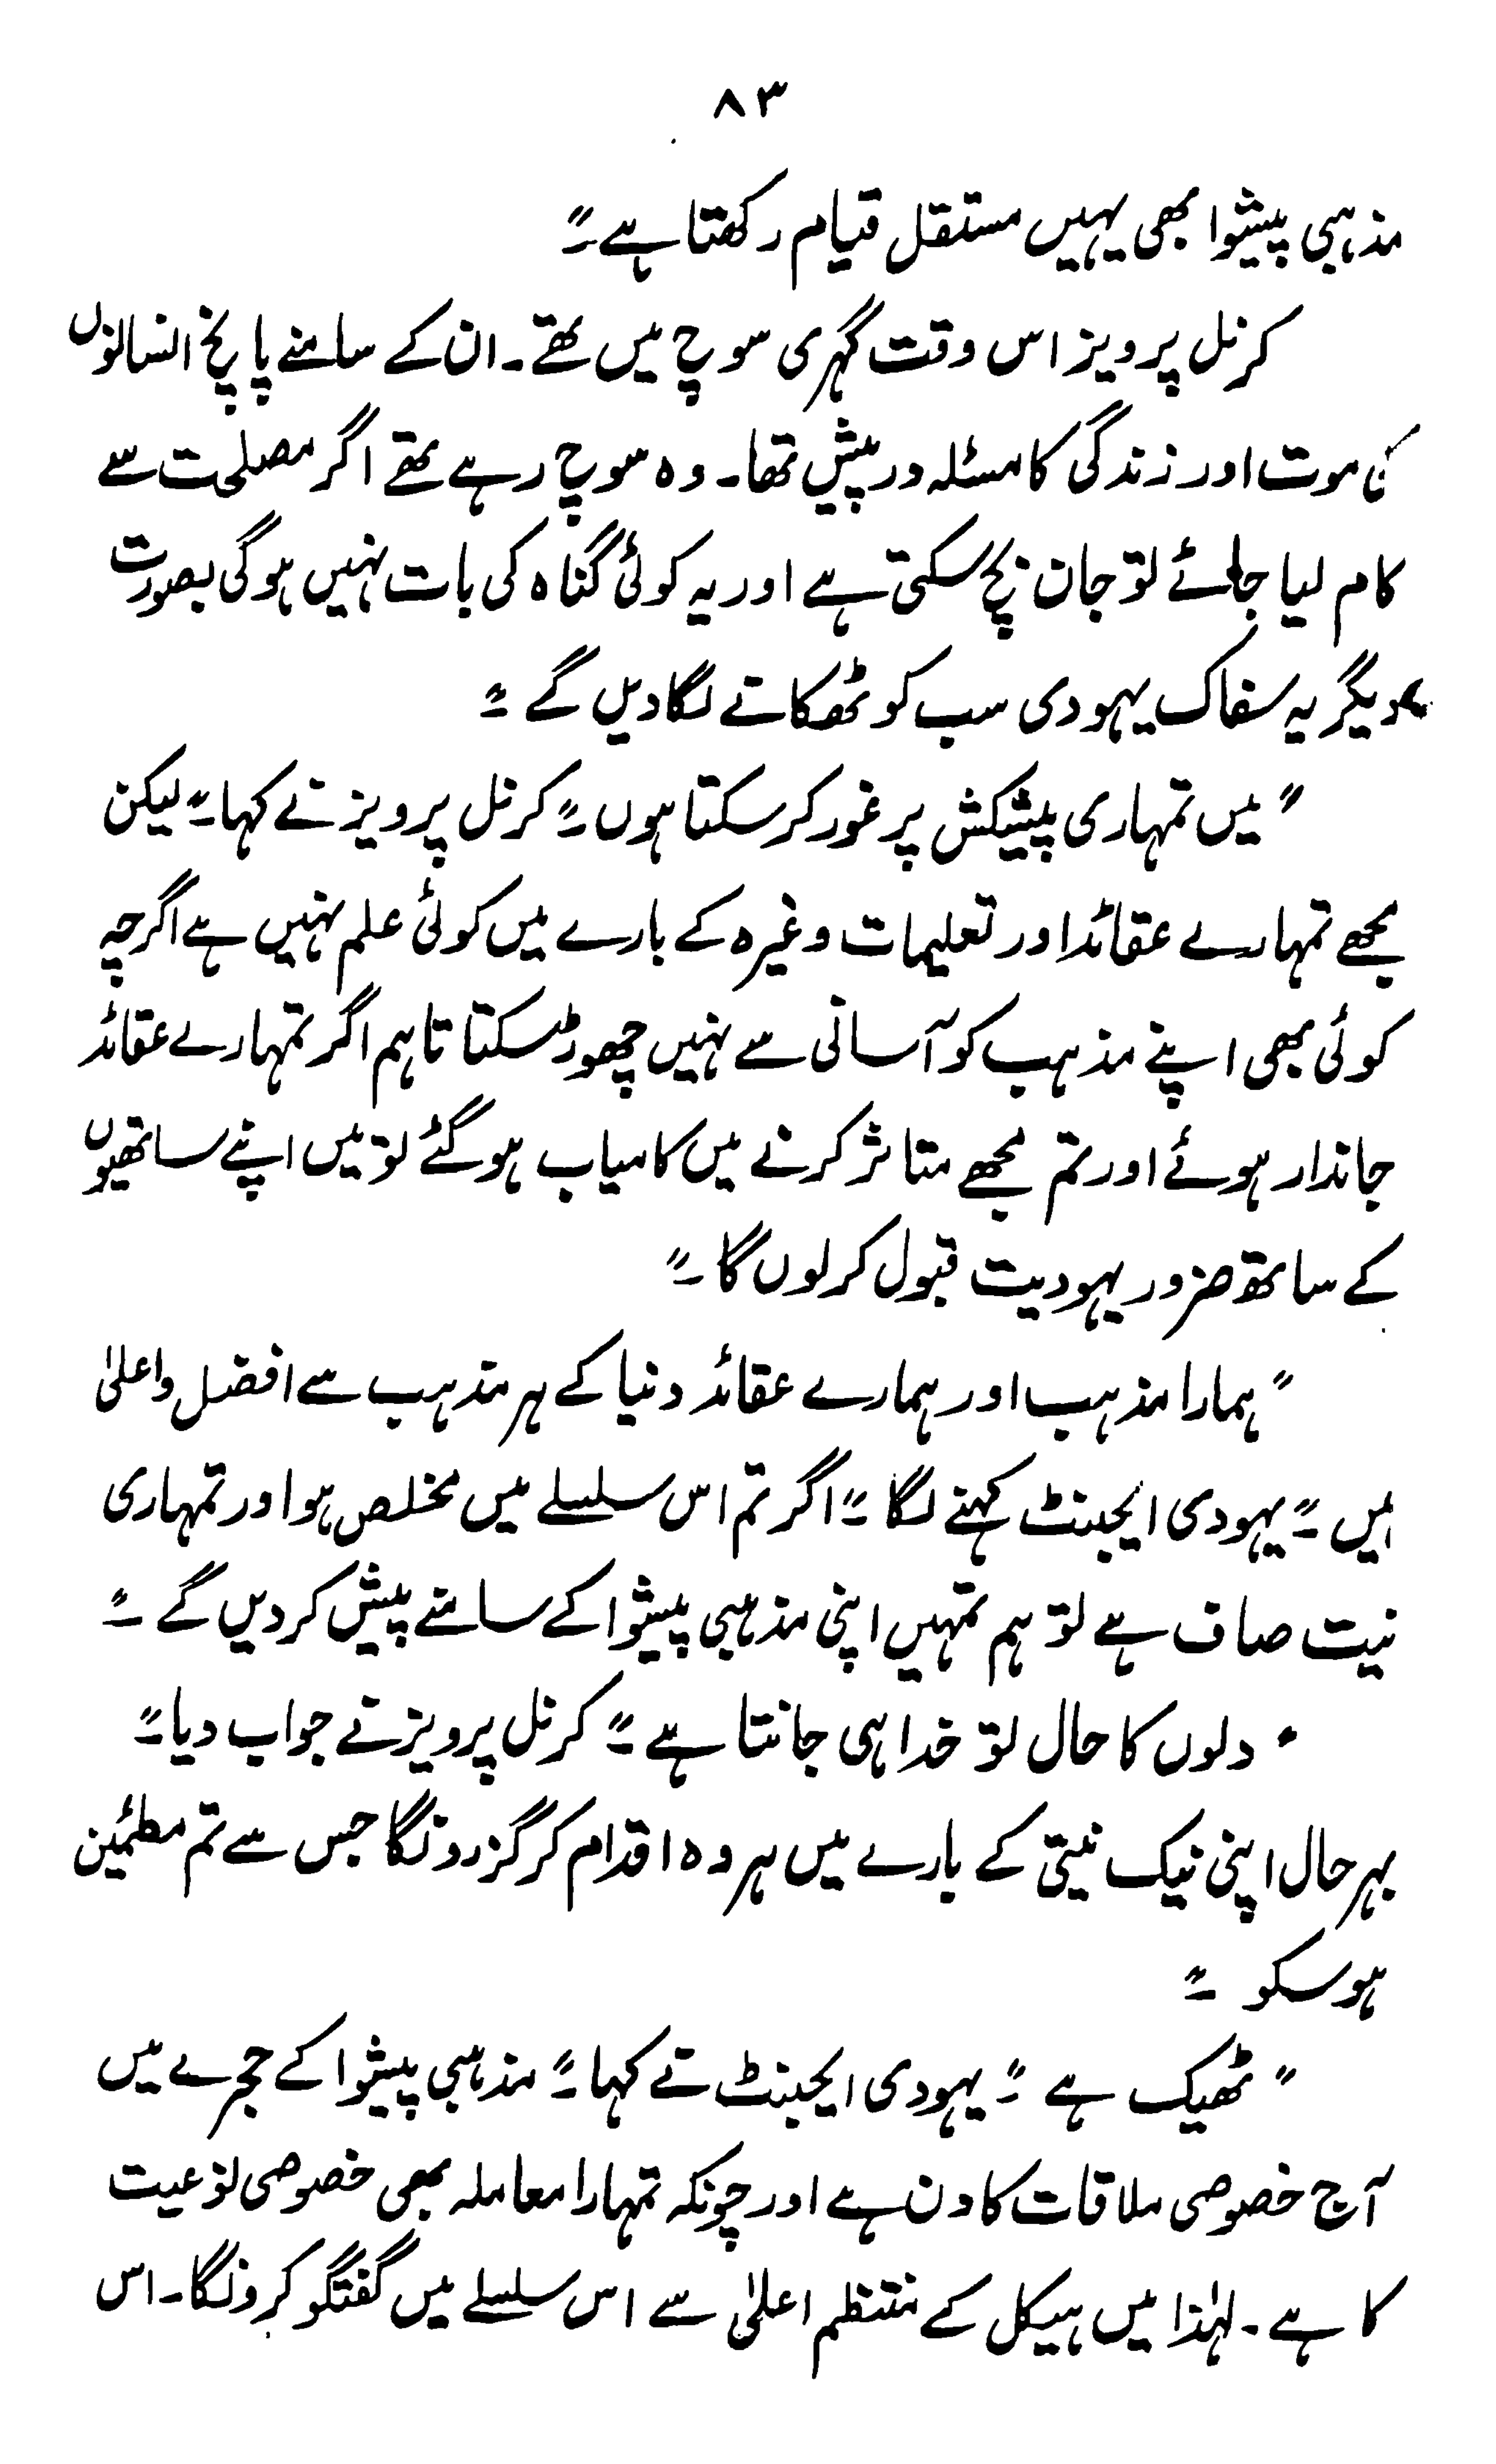 ۸۳
مذہبی پیشوا بھی یہیں مستقل قیام رکھتا ہے۔"
کرنل پرویز اس وقت گہری سوچ میں تھے۔ ان کے سامنے پانچ انسانوں
کی موت اور زندگی کا مسئلہ درپیش تھا۔ وہ سوچ رہے تھے اگر مصلحت سے
کام لیا جائے تو جان بچ سکتی ہے اور یہ کوئی گناہ کی بات نہیں ہوگی بصورت
دیگر یہ سفاک یہودی سب کو ٹھکانے لگا دیں گے۔"
"میں تمہاری پیشکش پر غور کر سکتا ہوں۔" کرنل پرویز نے کہا۔" لیکن
مجھے تمہارے عقائد اور تعلیمات وغیرہ کے بارے میں کوئی علم نہیں ہے اگرچہ
کوئی بھی اپنے مذہب کو آسانی سے نہیں چھوڑ سکتا تاہم اگر تمہارے عقائد
جاندار ہوئے اور تم مجھے متاثر کرنے میں کامیاب ہو گئے تو میں اپنے ساتھیوں
کے ساتھ ضرور یہودیت قبول کر لوں گا۔"
"ہمارا مذہب اور ہمارے عقائد دنیا کے ہر مذہب سے افضل و اعلیٰ
ہیں۔" یہودی ایجنٹ کہنے لگا۔" اگر تم اس سلسلے میں مخلص ہو اور تمہاری
نیت صاف ہے تو ہم تمہیں اپنی مذہبی پیشوا کے سامنے پیش کر دیں گے۔"
"دلوں کا حال تو خدا ہی جانتا ہے۔" کرنل پرویز نے جواب دیا۔"
بہرحال اپنی نیک نیتی کے بارے میں ہر وہ اقدام کر گزرونگا جس سے تم مطمئین
ہو سکو۔"
"ٹھیک ہے۔" یہودی ایجنٹ نے کہا۔" مذہبی پیشوا کے حجرے میں
آج خصوصی ملاقات کا دن ہے اور چونکہ تمہارا معاملہ بھی خصوصی نوعیت
کا ہے۔ لہٰذا میں ہیکل کے منتظم اعلیٰ سے اس سلسلے میں گفتگو کرونگا۔ اس